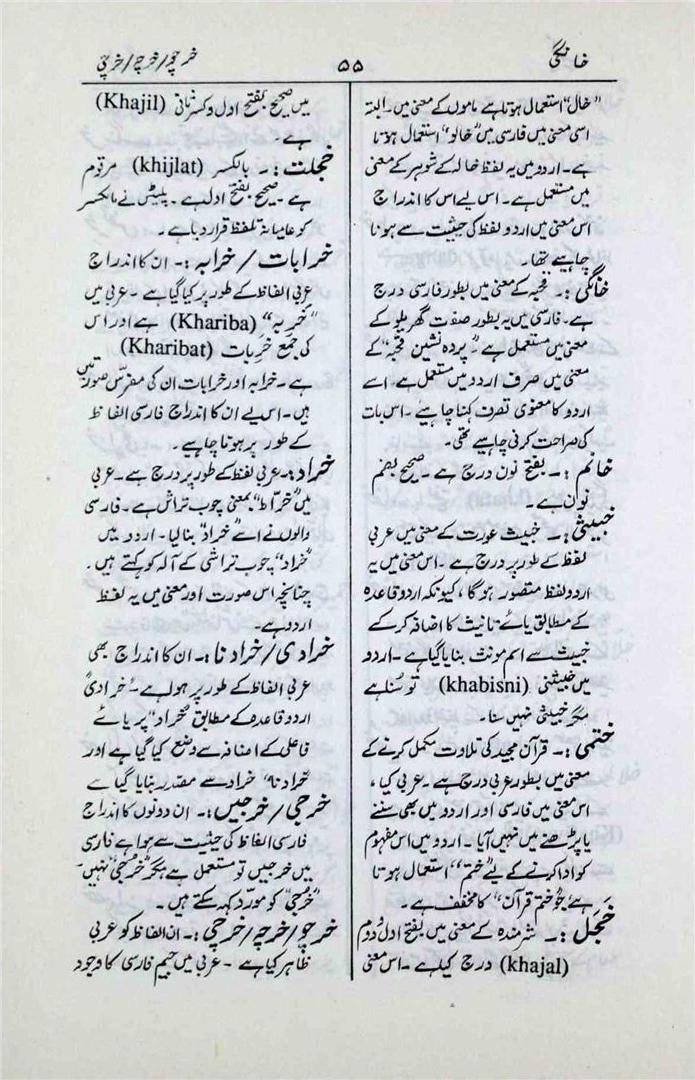 خانگی ۵۵ خرچو/خرچے/خرچی
”خال“ استعمال ہوتا ہے ماموں کے معنی میں۔ البتہ
اسی معنی میں فارسی میں ”خالو“ استعمال ہوتا
ہے۔ اردو میں یہ لفظ خالہ کے شوہر کے معنی
میں مستعمل ہے۔ اس لیے اس کا اندراج
اس معنی میں اردو لفظ کی حیثیت سے ہونا
چاہیے تھا۔
خانگی :۔ قحبہ کے معنی میں بطور فارسی درج
ہے۔ فارسی میں یہ بطور صفت گھریلو کے
معنی میں مستعمل ہے۔ ”پردہ نشین قحبہ“ کے
معنی میں صرف اردو میں مستعمل ہے۔ اسے
اردو کا معنوی تصرف کہنا چاہیے۔ اس بات
کی صراحت کرنی چاہیے تھی۔
خانم :۔ بفتح نون درج ہے۔ صحیح بضم
نون ہے۔
خبیثی :۔ خبیث عورت کے معنی میں عربی
لفظ کے طور پر درج ہے۔ اس معنی میں یہ
اردو لفظ متصور ہوگا، کیونکہ اردو قاعدہ
کے مطابق یائے تانیث کا اضافہ کر کے
خبیث سے اسم مونث بنایا گیا ہے۔ اردو
میں خبیثنی (khabisni) تو سنا ہے
مگر خبیثی نہیں سنا۔
ختمی :۔ قرآن مجید کی تلاوت مکمل کرنے کے
معنی میں بطور عربی درج ہے۔ عربی کیا،
اس معنی میں فارسی اور اردو میں بھی سننے
یا پڑھنے میں نہیں آیا۔ اردو میں اس مفہوم
کو ادا کرنے کے لیے ”ختم“ استعمال ہوتا
ہے جو ”ختم قرآن“ کا مخفف ہے۔
خجل :۔ شرمندہ کے معنی میں بفتح اول و دوم
(khajal) درج کیا ہے۔ اس معنی
میں صحیح بفتح اول و کسر ثانی (Khajil)
ہے۔
خجلت :۔ بالکسر (khijlat) مرقوم
ہے۔ صحیح بفتح اول ہے۔ پلیٹس نے بالکسر
کو عامیانہ تلفظ قرار دیا ہے۔
خرابات/خرابہ :۔ ان کا اندراج
عربی الفاظ کے طور پر کیا گیا ہے۔ عربی میں
”خربہ“ (Khariba) ہے اور اس
کی جمع خربات (Kharibat)
ہے۔ خرابہ اور خرابات ان کی مفرس صورتیں
ہیں۔ اس لیے ان کا اندراج فارسی الفاظ
کے طور پر ہونا چاہیے۔
خراد :۔ عربی لفظ کے طور پر درج ہے۔ عربی
میں ”خراط“ بمعنی چوب تراش ہے۔ فارسی
والوں نے اسے ”خراد“ بنا لیا۔ اردو میں
”خراد“ چوب تراشی کے آلہ کو کہتے ہیں۔
چنانچہ اس صورت اور معنی میں یہ لفظ
اردو ہے۔
خرادی/خرادنا :۔ ان کا اندراج بھی
عربی الفاظ کے طور پر ہوا ہے۔ ”خرادی“
اردو قاعدہ کے مطابق ”خراد“ پر یائے
فاعلی کے اضافہ سے وضع کیا گیا ہے اور
”خرادنا“ خراد سے مصدر بنایا گیا ہے
خرجی/خرجیں :۔ ان دونوں کا اندراج
فارسی الفاظ کی حیثیت سے ہوا ہے فارسی
میں خرجیں تو مستعمل ہے مگر ”خرجی“ نہیں۔
”خرجی“ کو مورد کہہ سکتے ہیں۔
خرچو/خرچہ/خرچی :۔ ان الفاظ کو عربی
ظاہر کیا ہے۔ عربی میں جیم فارسی کا وجود